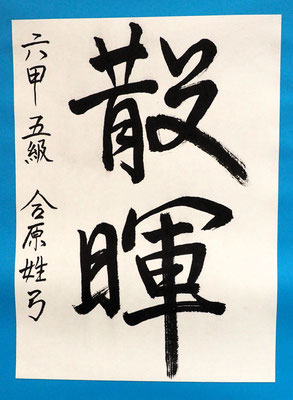 散暉
六甲 五級 合原姓弓